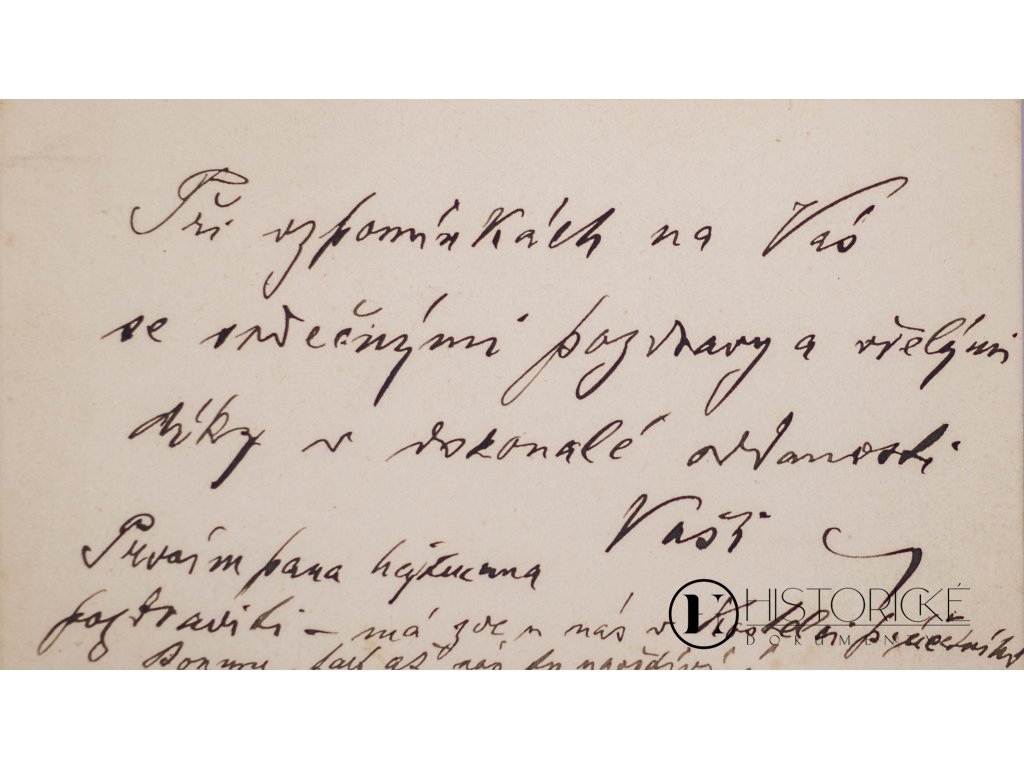 Při vzpomínkách na Vás
se srdečnými pozdravy a vřelými
díky v dokonalé oddanosti
Vaši
Prosím pana hejtmana
pozdraviti – má zde u nás v
HISTORICKÉ
DOKUMENTY